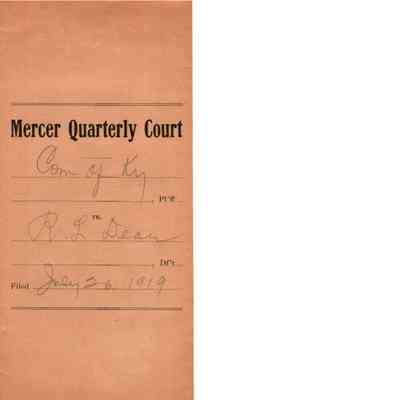 Mercer Quarterly Court
Com of Ky
, Pl'ff
vs.
R. L Dean
, Df't
Filed July 26 1919